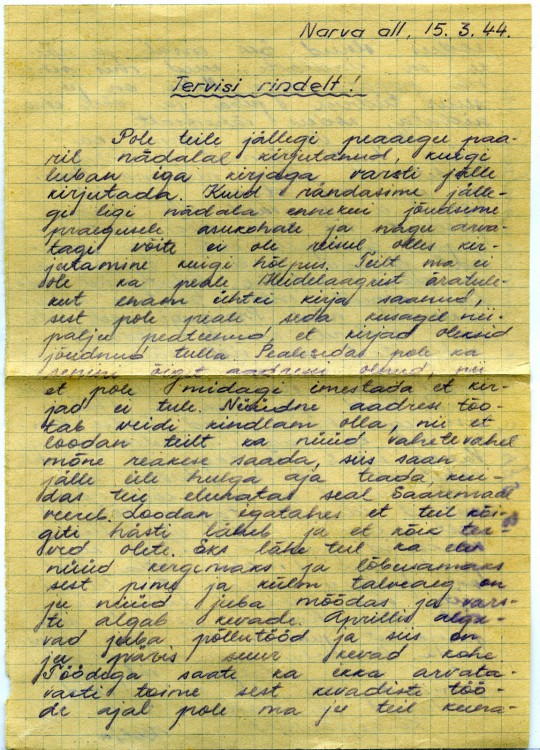 Narva all, 15. 3. 44.
Tervisi rindelt!
Pole teile jällegi peaaegu paa-
ril nädalal kirjutanud, kuigi
luban iga kirjaga varsti jälle
kirjutada. Kuid rändasime jälle-
gi ligi nädala ennekui jõudsime
praegusele asukohale ja nagu arva-
tagi võite ei ole reisul olles kir-
jutamine kuigi hõlpus. Teilt ma ei
ole ka peale Heidelaagrist äratule-
kut enam ühtki kirja saanud,
sest pole peale seda kusagil nii-
palju peatunud, et kirjad oleksid
jõudnud tulla. Pealeseda pole ka
õiget aadressi olnud, nii
et pole midagi imestada et kir-
jad ei tule. Nüüdne aadress töo-
tab veidi kindlam olla, nii et
loodan teilt ka nüüd vahetevahel
mõne reakese saada, siis saan
jälle üle hulga aja teada kui-
das teie elunatas seal Saaremaal
veereb. Loodan igatahes et teil kõi-
giti hästi läheb ja et kõik ter-
ved olete. Eks lähe teil ka elu
nüüd kergemaks ja lõbusamaks
sest pime ja külm talveaeg on
ju nüüd juba möödas ja vars-
ti algab kevade. Aprillis alga-
vad juba põllutööd ja siis on
ju päris suur kevad kohe.
Töödega saate ka ikka arvata-
vasti toime sest kevadiste töö-
de ajal pole ma ju teil kuna-